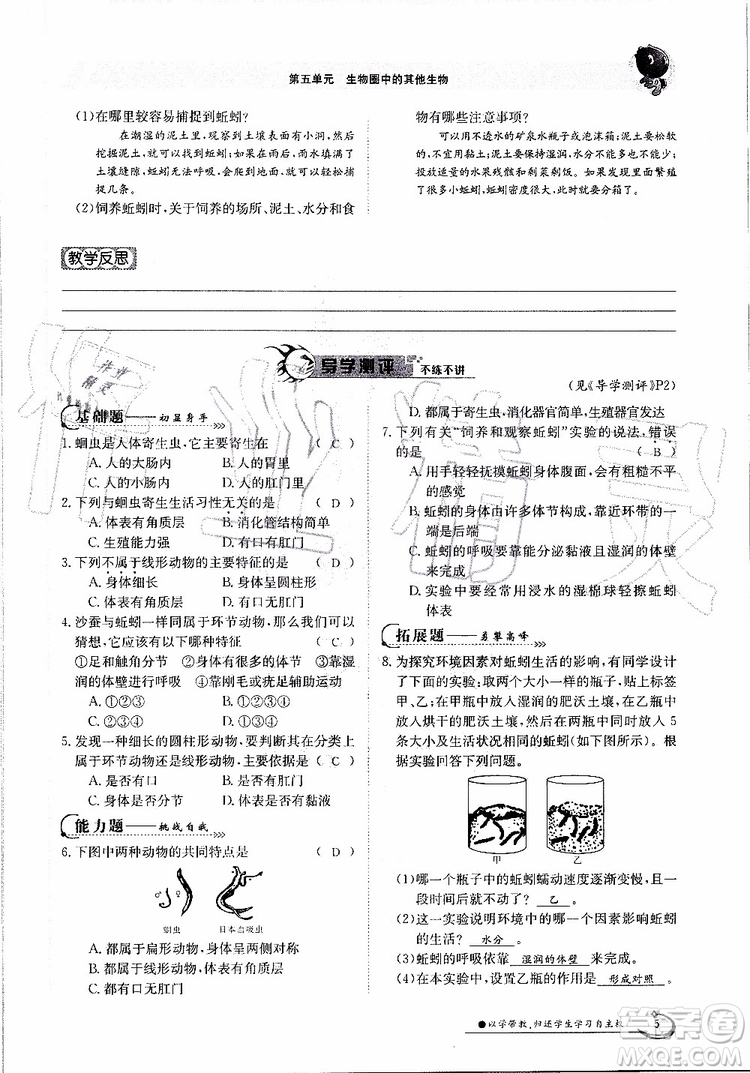 第五单元　生物圈中的其他生物
(1)在哪里较容易捕捉到蚯蚓?
在潮湿的泥土里,观察到土壤有小洞,然后
挖掘泥土,就可以捕捉到蚯蚓;雨后,雨水灌满了
土壤缝隙,蚯蚓无法呼吸,会爬出地面,轻松可捕捉
几条。
(2)饲养蚯蚓时,关于饲养的场所、泥土、水分和食
物有哪些注意事项?
可以用不透水的矿泉水瓶子或泡沫箱;泥土要松软
的,不要黏土。泥土要保持湿润,水分不能多也不能少。
投放适量的水果残骸和剩菜剩饭。如果里面繁殖
了很多小蚯蚓,蚯蚓密度很大,就要分箱。
教学反思
导学测评　不练不讲
(见《导学测评》P2)
基础题——初显身手
1. 蛔虫是人体寄生虫,它主要寄生在 ( C )
A. 人的大肠内　B. 人的胃里
C. 人的小肠内　D. 人的肛门里
2. 下列与蛔虫寄生生活习性无关的是 ( D )
A. 体表有角质层　B. 消化管结构简单
C. 生殖能力强　D. 有口有肛门
3. 下列不属于线形动物的主要特征的是 ( D )
A. 身体细长　B. 身体呈圆柱形
C. 体表有角质层　D. 有口无肛门
4. 沙蚕与蚯蚓一样同属于环节动物,那么我们可以
猜想,它应该有以下哪种特征 ( C )
①足和触角分节　②身体有很多的体节　③靠湿
润的体壁进行呼吸　④靠刚毛或疣足辅助运动
A. ①②③　B. ①③④
C. ②③④　D. ①②④
5. 发现一种细长的圆柱形动物,要判断其是属于环
节动物还是线形动物,主要依据是 ( C )
A. 是否有口　B. 是否有肛门
C. 身体是否分节　D. 体表是否有黏液
能力题——挑战自我
6. 下图中两种动物的共同特点是 ( D )
蛔虫　日本血吸虫
A. 都属于扁形动物,身体呈两侧对称
B. 都属于线形动物,体表有角质层
C. 都属于寄生虫,且有口有肛门
D. 都属于寄生虫,消化器官简单,生殖器官发达
7. 下列有关“饲养和观察蚯蚓”实验的说法,错误
的是 ( B )
A. 用手轻轻抚摸蚯蚓身体腹面,会有粗糙不平
的感觉
B. 蚯蚓的身体由许多体节构成,靠近环带的一
端是后端
C. 蚯蚓的呼吸要靠能分泌黏液且湿润的体壁
来完成
D. 实验中要经常用浸水的湿棉球轻擦蚯蚓
体表
拓展题——勇攀高峰
8. 为探究环境因素对蚯蚓生活的影响,有同学进行
了下面的实验:取两个大小一样的瓶子,贴上标签
甲、乙;在甲瓶中放入湿润的肥沃土壤,在乙瓶中
放入烘干的肥沃土壤,然后在两瓶中分别放入 5
条大小及生活状况相同的蚯蚓(如下图所示)。
根据实验回答下列问题。
甲　乙
(1)哪一个瓶子中的蚯蚓蠕动速度逐渐变慢,且一
段时间后就不动了? 乙 。
(2)这一实验说明环境中的哪一个因素影响蚯蚓
的生活? 水分 。
(3)蚯蚓的呼吸依靠 湿润的体壁 来完成。
(4)在本实验中,设置乙瓶的作用是 形成对照 。
●以学带教,归还学生学习自主权
5
作业
精灵
作业精灵
答案圈
MXQE.COM